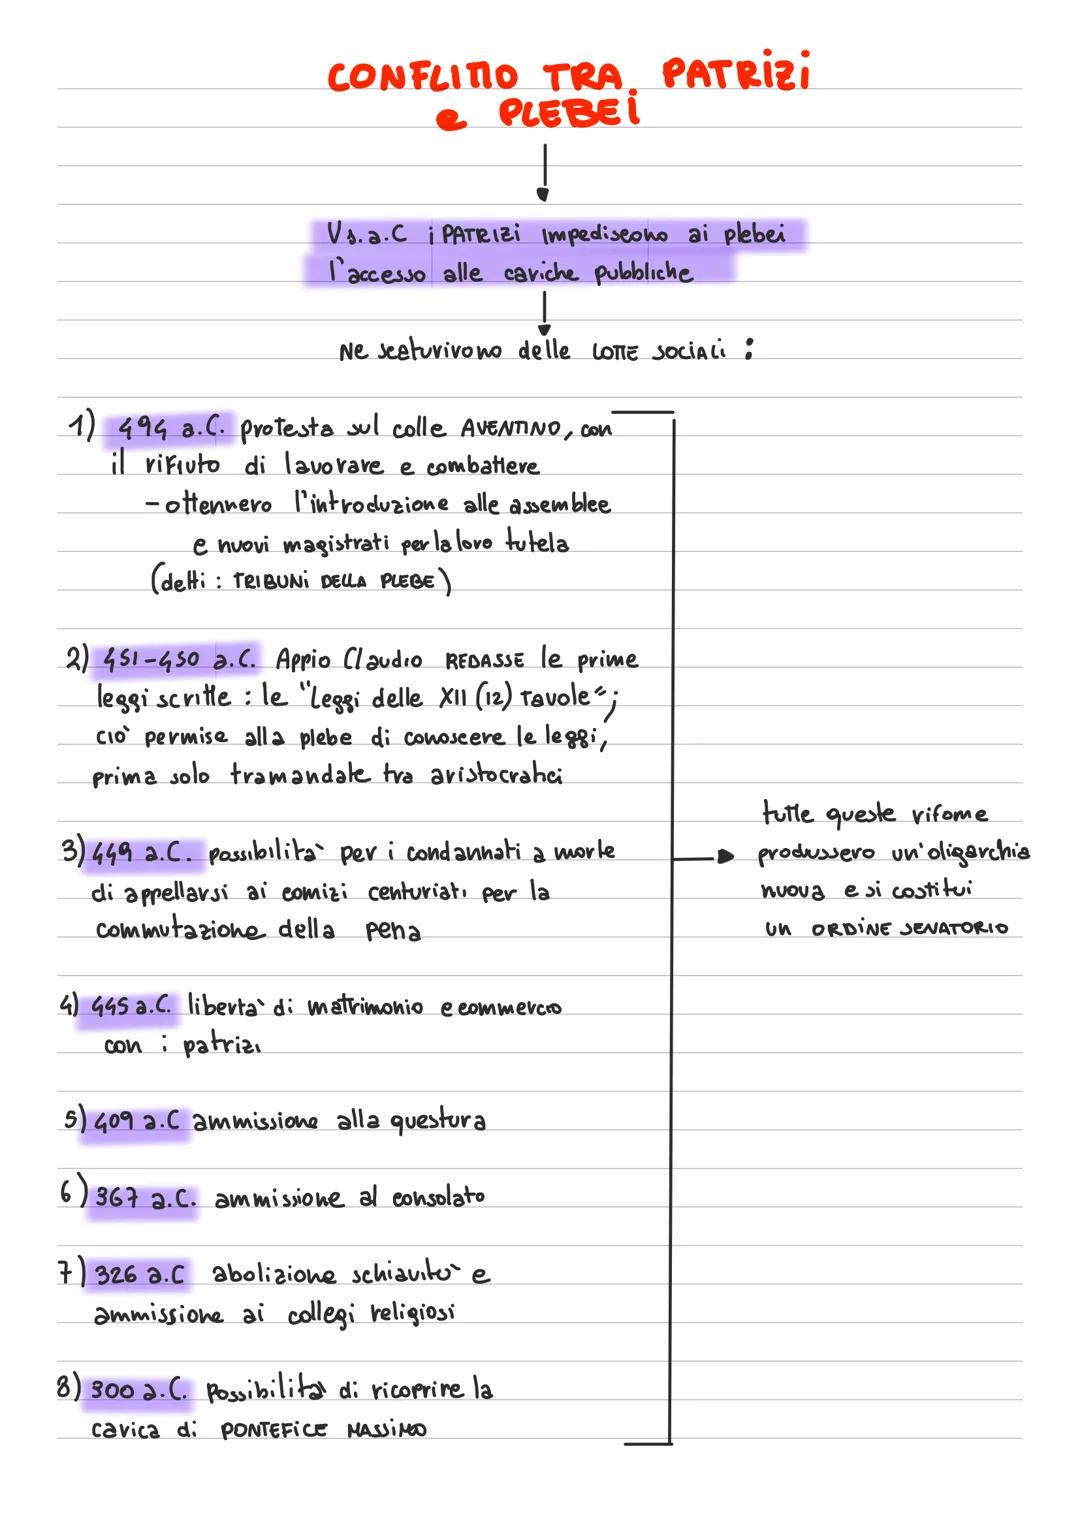 CONFLITTO TRA PATRIZI
e PLEBEI
V s. a.C i PATRIZI impediscono ai plebei
l'accesso alle cariche pubbliche
Ne scaturirono delle LOTTE SOCIALI :
1) 494 a.C. protesta sul colle AVENTINO, con
il rifiuto di lavorare e combattere
- ottennero l'introduzione alle assemblee
e nuovi magistrati per la loro tutela
(detti : TRIBUNI DELLA PLEBE)
2) 451-450 a.C. Appio Claudio REDASSE le prime
leggi scritte : le "Leggi delle XII (12) Tavole";
ciò permise alla plebe di conoscere le leggi,
prima solo tramandate tra aristocratici
3) 449 a.C. possibilità per i condannati a morte
di appellarsi ai comizi centuriati per la
commutazione della pena
4) 445 a.C. libertà di matrimonio e commercio
con i patrizi
5) 409 a.C ammissione alla questura
6) 367 a.C. ammissione al consolato
7) 326 a.C abolizione schiavitù e
ammissione ai collegi religiosi
8) 300 a.C. possibilità di ricoprire la
carica di PONTEFICE MASSIMO
tutte queste rifome
produssero un'oligarchia
nuova e si costituì
un ORDINE SENATORIO